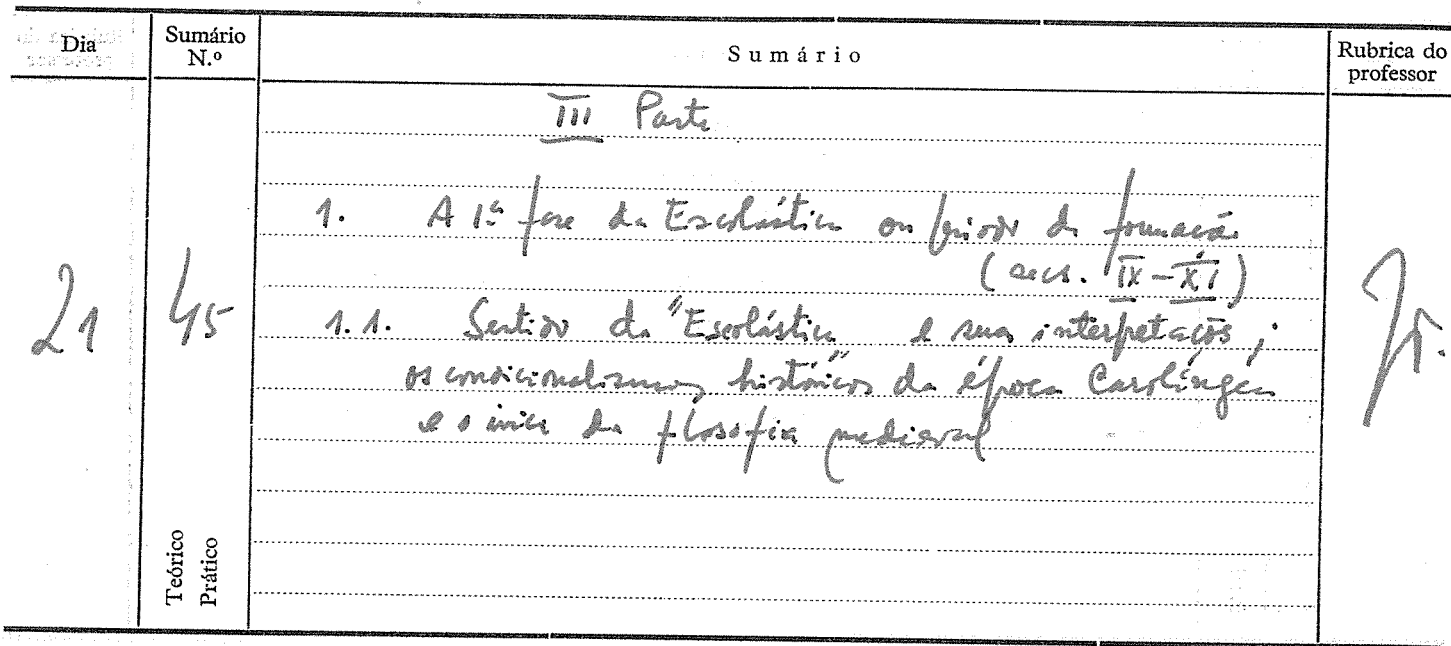 Dia
Sumário N.º
Sumário
Rubrica do professor
21
45
III Parte
1. A 1ª fase da Escolástica ou período de formação
(secs. IX-XI)
1.1. Sentido da "Escolástica" e suas interpretações;
os condicionalismos históricos da época Carolíngea
e o início da filosofia medieval
Teórico
Prático